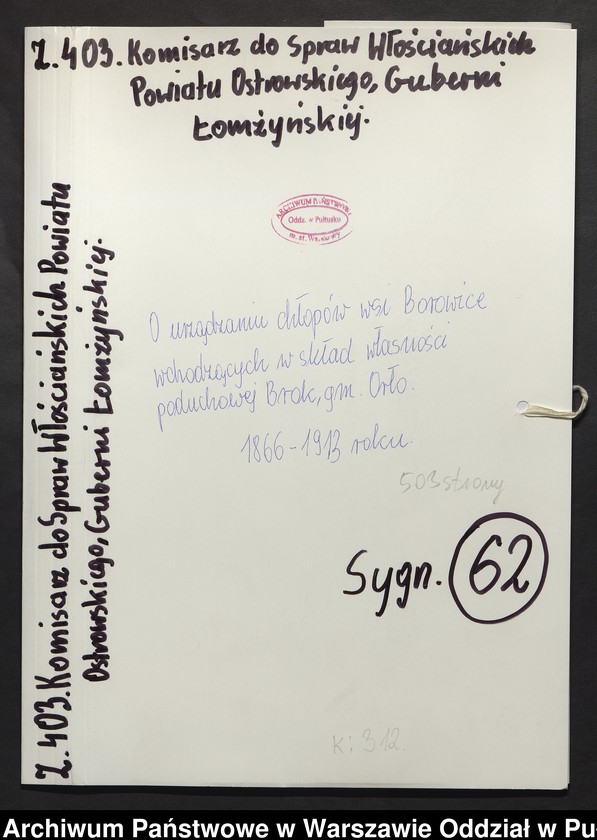 Z. 403. Komisarz do Spraw Włościańskich
Powiatu Ostrowskiego, Guberni
Łomżyńskiej.
ARCHIWUM PAŃSTWOWE
Oddz. w Pułtusku
m. st. Warszawy
O urządzaniu chłopów wsi Borowice
wchodzących w skład własności
poduchowej Brok, gm. Orło.
1866-1913 roku.
503 strony
Sygn. 62
K: 312.
Z. 403. Komisarz do Spraw Włościańskich Powiatu
Ostrowskiego, Guberni Łomżyńskiej.
Archiwum Państwowe w Warszawie Oddział w Pu